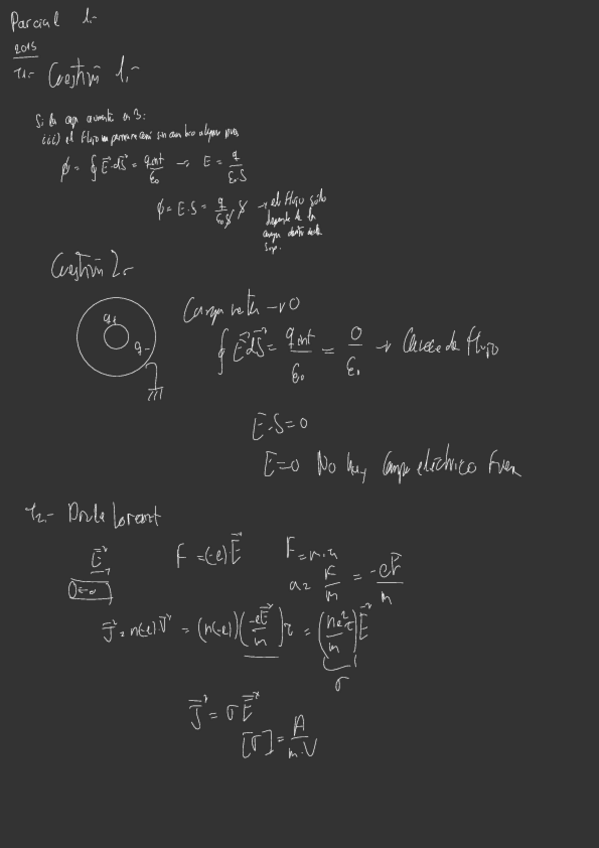 Parcial 1.-
2015
T1.- Cuestión 1.-
Si la carga aumenta en 3:
iii) el flujo permanecerá sin cambio alguno pues
ϕ = ∮ E⃗·dS⃗ = q int / ε₀ → E = q / ε₀·S
ϕ = E·S = q / ε₀S S → el flujo sólo
depende de la
carga dentro de la
sup.
Cuestión 2.-
q+
q-
Carga neta → 0
∮ E⃗ dS⃗ = q int / ε₀ = 0 / ε₀ → Carece de flujo
E·S = 0
E = 0 No hay campo eléctrico fuera
T2.-
E⃗
F = (-e) E⃗ F = m·a
a = F / m = -eE⃗ / m
J⃗ = n(-e) v⃗ = (n(-e)) (-eE⃗ / m) τ = (ne²τ / m) E⃗
σ
J⃗ = σ E⃗
[σ] = A / m·V